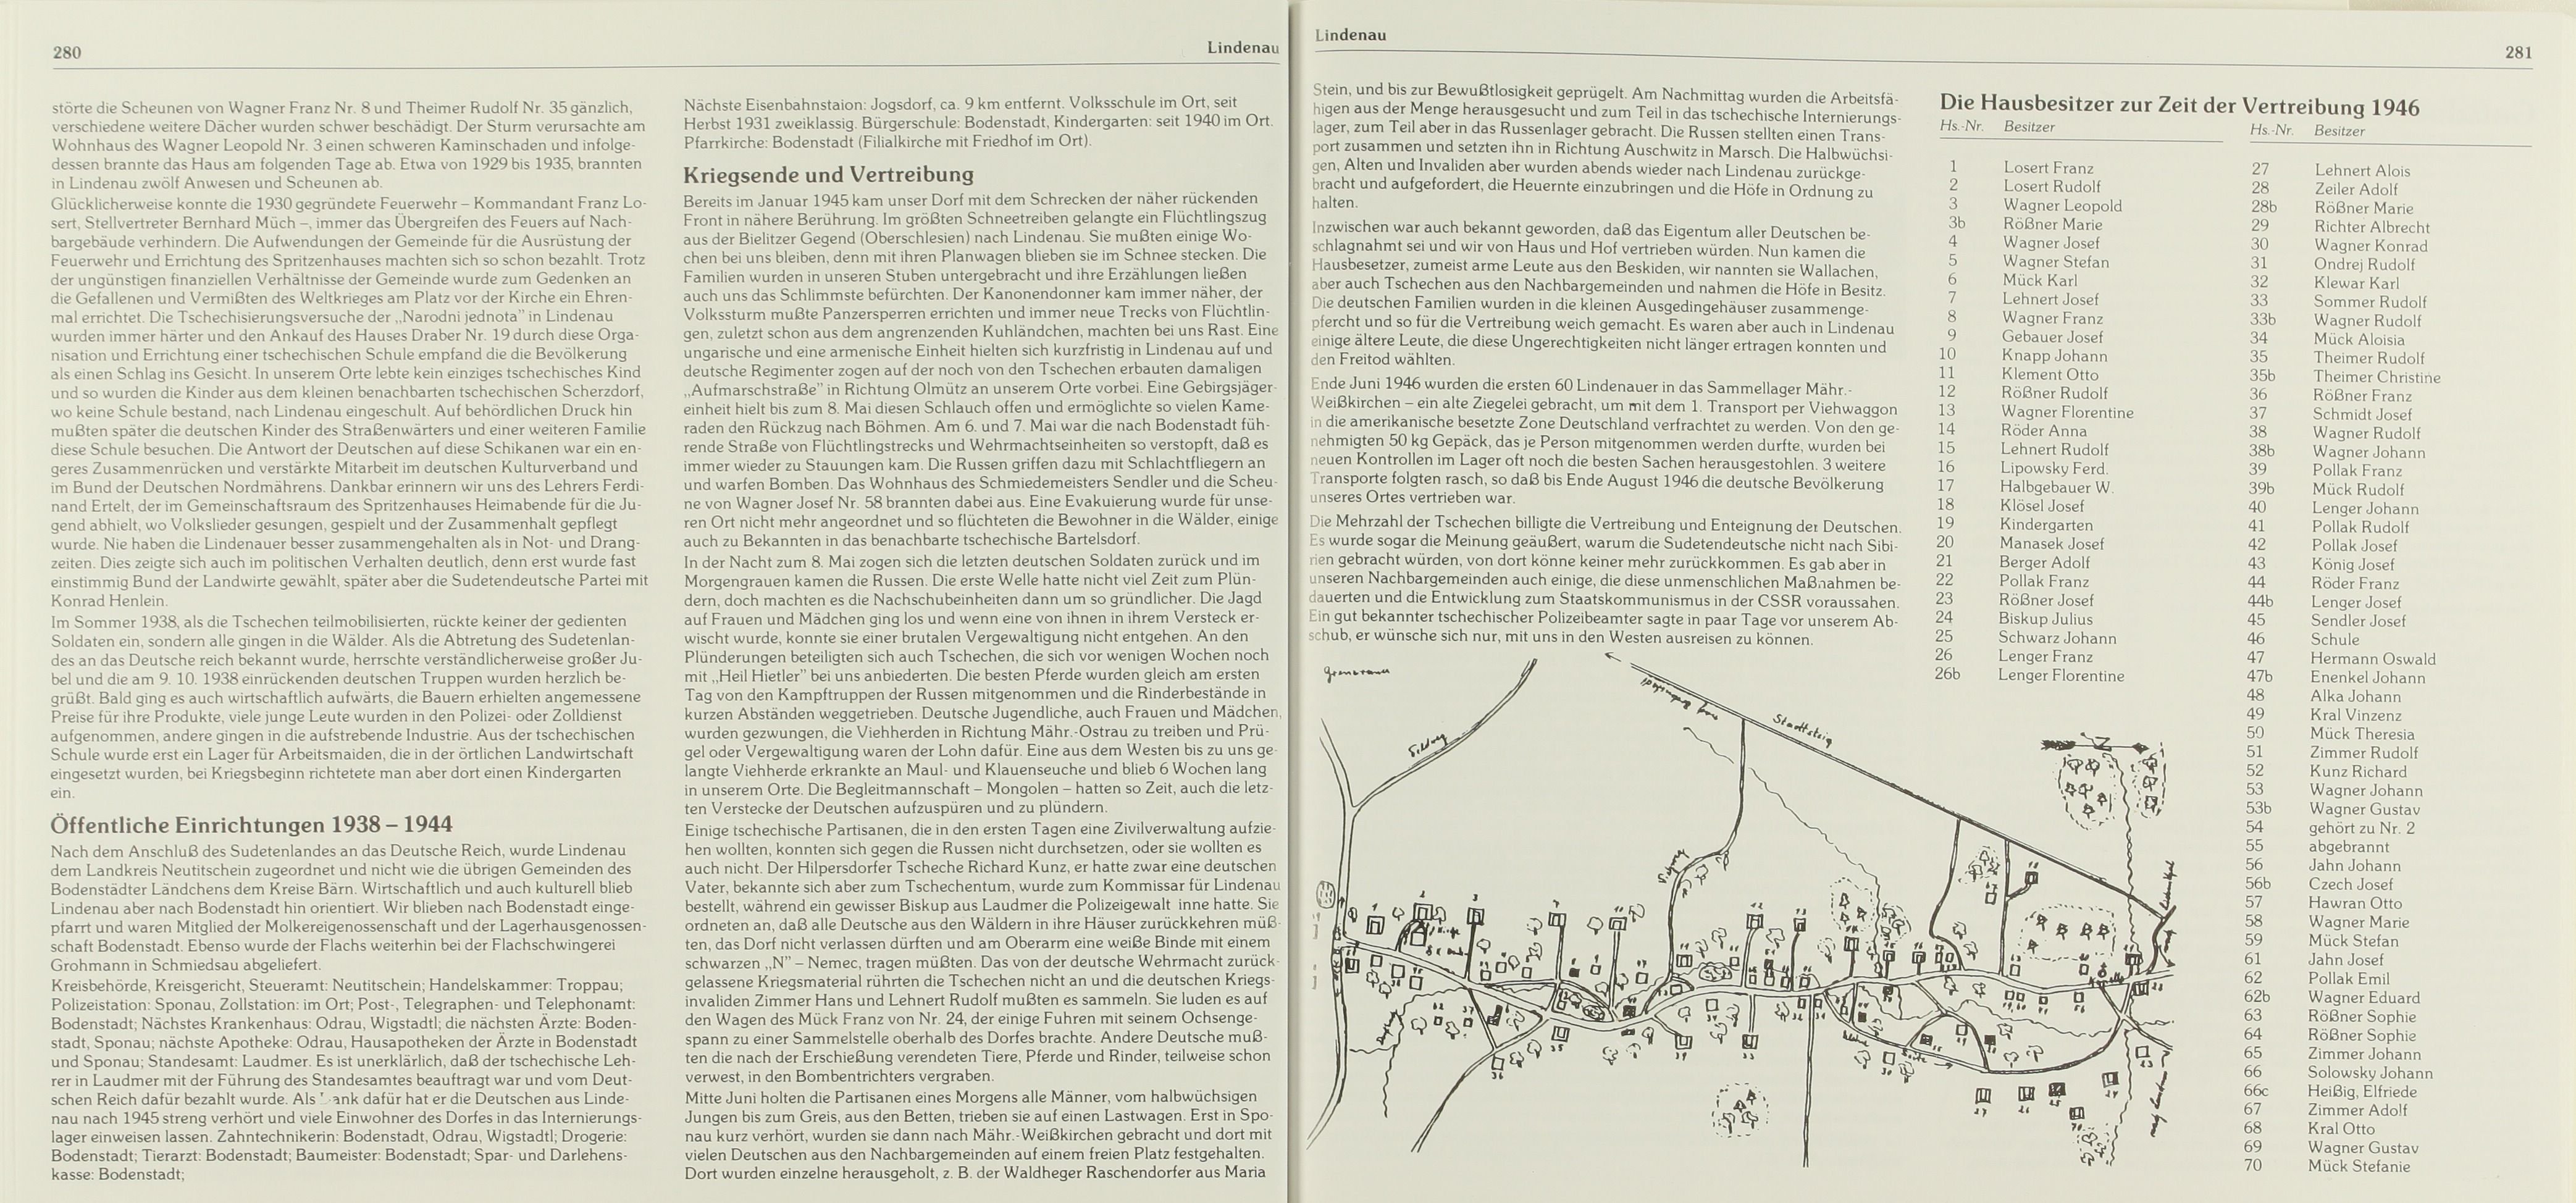 280
Lindenau
störte die Scheunen von Wagner Franz Nr. 8 und Theimer Rudolf Nr. 35 gänzlich,
verschiedene weitere Dächer wurden schwer beschädigt. Der Sturm verursachte am
Wohnhaus des Wagner Leopold Nr. 3 einen schweren Kaminschaden und infolge-
dessen brannte das Haus am folgenden Tage ab. Etwa von 1929 bis 1935, brannten
in Lindenau zwölf Anwesen und Scheunen ab.
Glücklicherweise konnte die 1930 gegründete Feuerwehr – Kommandant Franz Lo-
sert, Stellvertreter Bernhard Müch –, immer das Übergreifen des Feuers auf Nach-
bargebäude verhindern. Die Aufwendungen der Gemeinde für die Ausrüstung der
Feuerwehr und Errichtung des Spritzenhauses machten sich so schon bezahlt. Trotz
der ungünstigen finanziellen Verhältnisse der Gemeinde wurde zum Gedenken an
die Gefallenen und Vermißten des Weltkrieges am Platz vor der Kirche ein Ehren-
mal errichtet. Die Tschechisierungsversuche der „Narodni jednota" in Lindenau
wurden immer härter und den Ankauf des Hauses Draber Nr. 19 durch diese Orga-
nisation und Errichtung einer tschechischen Schule empfand die die Bevölkerung
als einen Schlag ins Gesicht. In unserem Orte lebte kein einziges tschechisches Kind
und so wurden die Kinder aus dem kleinen benachbarten tschechischen Scherzdorf,
wo keine Schule bestand, nach Lindenau eingeschult. Auf behördlichen Druck hin
mußten später die deutschen Kinder des Straßenwärters und einer weiteren Familie
diese Schule besuchen. Die Antwort der Deutschen auf diese Schikanen war ein en-
geres Zusammenrücken und verstärkte Mitarbeit im deutschen Kulturverband und
im Bund der Deutschen Nordmährens. Dankbar erinnern wir uns des Lehrers Ferdi-
nand Ertelt, der im Gemeinschaftsraum des Spritzenhauses Heimabende für die Ju-
gend abhielt, wo Volkslieder gesungen, gespielt und der Zusammenhalt gepflegt
wurde. Nie haben die Lindenauer besser zusammengehalten als in Not- und Drang-
zeiten. Dies zeigte sich auch im politischen Verhalten deutlich, denn erst wurde fast
einstimmig Bund der Landwirte gewählt, später aber die Sudetendeutsche Partei mit
Konrad Henlein.
Im Sommer 1938, als die Tschechen teilmobilisierten, rückte keiner der gedienten
Soldaten ein, sondern alle gingen in die Wälder. Als die Abtretung des Sudetenlan-
des an das Deutsche reich bekannt wurde, herrschte verständlicherweise großer Ju-
bel und die am 9. 10. 1938 einrückenden deutschen Truppen wurden herzlich be-
grüßt. Bald ging es auch wirtschaftlich aufwärts, die Bauern erhielten angemessene
Preise für ihre Produkte, viele junge Leute wurden in den Polizei- oder Zolldienst
aufgenommen, andere gingen in die aufstrebende Industrie. Aus der tschechischen
Schule wurde erst ein Lager für Arbeitsmaiden, die in der örtlichen Landwirtschaft
eingesetzt wurden, bei Kriegsbeginn richtetete man aber dort einen Kindergarten
ein.
Öffentliche Einrichtungen 1938 – 1944
Nach dem Anschluß des Sudetenlandes an das Deutsche Reich, wurde Lindenau
dem Landkreis Neutitschein zugeordnet und nicht wie die übrigen Gemeinden des
Bodenstädter Ländchens dem Kreise Bärn. Wirtschaftlich und auch kulturell blieb
Lindenau aber nach Bodenstadt hin orientiert. Wir blieben nach Bodenstadt einge-
pfarrt und waren Mitglied der Molkereigenossenschaft und der Lagerhausgenossen-
schaft Bodenstadt. Ebenso wurde der Flachs weiterhin bei der Flachschwingerei
Grohmann in Schmiedsau abgeliefert.
Kreisbehörde, Kreisgericht, Steueramt: Neutitschein; Handelskammer: Troppau;
Polizeistation: Sponau, Zollstation: im Ort; Post-, Telegraphen- und Telephonamt:
Bodenstadt; Nächstes Krankenhaus: Odrau, Wigstadtl; die nächsten Ärzte: Boden-
stadt, Sponau; nächste Apotheke: Odrau, Hausapotheken der Ärzte in Bodenstadt
und Sponau; Standesamt: Laudmer. Es ist unerklärlich, daß der tschechische Leh-
rer in Laudmer mit der Führung des Standesamtes beauftragt war und vom Deut-
schen Reich dafür bezahlt wurde. Als ank dafür hat er die Deutschen aus Linde-
nau nach 1945 streng verhört und viele Einwohner des Dorfes in das Internierungs-
lager einweisen lassen. Zahntechnikerin: Bodenstadt, Odrau, Wigstadtl; Drogerie:
Bodenstadt; Tierarzt: Bodenstadt; Baumeister: Bodenstadt; Spar- und Darlehens-
kasse: Bodenstadt;
Nächste Eisenbahnstaion: Jogsdorf, ca. 9 km entfernt. Volksschule im Ort, seit
Herbst 1931 zweiklassig. Bürgerschule: Bodenstadt, Kindergarten: seit 1940 im Ort.
Pfarrkirche: Bodenstadt (Filialkirche mit Friedhof im Ort).
Kriegsende und Vertreibung
Bereits im Januar 1945 kam unser Dorf mit dem Schrecken der näher rückenden
Front in nähere Berührung. Im größten Schneetreiben gelangte ein Flüchtlingszug
aus der Bielitzer Gegend (Oberschlesien) nach Lindenau. Sie mußten einige Wo-
chen bei uns bleiben, denn mit ihren Planwagen blieben sie im Schnee stecken. Die
Familien wurden in unseren Stuben untergebracht und ihre Erzählungen ließen
auch uns das Schlimmste befürchten. Der Kanonendonner kam immer näher, der
Volkssturm mußte Panzersperren errichten und immer neue Trecks von Flüchtlin-
gen, zuletzt schon aus dem angrenzenden Kuhländchen, machten bei uns Rast. Eine
ungarische und eine armenische Einheit hielten sich kurzfristig in Lindenau auf und
deutsche Regimenter zogen auf der noch von den Tschechen erbauten damaligen
„Aufmarschstraße" in Richtung Olmütz an unserem Orte vorbei. Eine Gebirgsjäger-
einheit hielt bis zum 8. Mai diesen Schlauch offen und ermöglichte so vielen Kame-
raden den Rückzug nach Böhmen. Am 6. und 7. Mai war die nach Bodenstadt füh-
rende Straße von Flüchtlingstrecks und Wehrmachtseinheiten so verstopft, daß es
immer wieder zu Stauungen kam. Die Russen griffen dazu mit Schlachtfliegern an
und warfen Bomben. Das Wohnhaus des Schmiedemeisters Sendler und die Scheu-
ne von Wagner Josef Nr. 58 brannten dabei aus. Eine Evakuierung wurde für unse-
ren Ort nicht mehr angeordnet und so flüchteten die Bewohner in die Wälder, einige
auch zu Bekannten in das benachbarte tschechische Bartelsdorf.
In der Nacht zum 8. Mai zogen sich die letzten deutschen Soldaten zurück und im
Morgengrauen kamen die Russen. Die erste Welle hatte nicht viel Zeit zum Plün-
dern, doch machten es die Nachschubeinheiten dann um so gründlicher. Die Jagd
auf Frauen und Mädchen ging los und wenn eine von ihnen in ihrem Versteck er-
wischt wurde, konnte sie einer brutalen Vergewaltigung nicht entgehen. An den
Plünderungen beteiligten sich auch Tschechen, die sich vor wenigen Wochen noch
mit „Heil Hietler" bei uns anbiederten. Die besten Pferde wurden gleich am ersten
Tag von den Kampftruppen der Russen mitgenommen und die Rinderbestände in
kurzen Abständen weggetrieben. Deutsche Jugendliche, auch Frauen und Mädchen,
wurden gezwungen, die Viehherden in Richtung Mähr.-Ostrau zu treiben und Prü-
gel oder Vergewaltigung waren der Lohn dafür. Eine aus dem Westen bis zu uns ge-
langte Viehherde erkrankte an Maul- und Klauenseuche und blieb 6 Wochen lang
in unserem Orte. Die Begleitmannschaft – Mongolen – hatten so Zeit, auch die letz-
ten Verstecke der Deutschen aufzuspüren und zu plündern.
Einige tschechische Partisanen, die in den ersten Tagen eine Zivilverwaltung aufzie-
hen wollten, konnten sich gegen die Russen nicht durchsetzen, oder sie wollten es
auch nicht. Der Hilpersdorfer Tscheche Richard Kunz, er hatte zwar eine deutschen
Vater, bekannte sich aber zum Tschechentum, wurde zum Kommissar für Lindenau
bestellt, während ein gewisser Biskup aus Laudmer die Polizeigewalt inne hatte. Sie
ordneten an, daß alle Deutsche aus den Wäldern in ihre Häuser zurückkehren müß-
ten, das Dorf nicht verlassen dürften und am Oberarm eine weiße Binde mit einem
schwarzen „N" – Nemec, tragen müßten. Das von der deutsche Wehrmacht zurück-
gelassene Kriegsmaterial rührten die Tschechen nicht an und die deutschen Kriegs-
invaliden Zimmer Hans und Lehnert Rudolf mußten es sammeln. Sie luden es auf
den Wagen des Mück Franz von Nr. 24, der einige Fuhren mit seinem Ochsenge-
spann zu einer Sammelstelle oberhalb des Dorfes brachte. Andere Deutsche muß-
ten die nach der Erschießung verendeten Tiere, Pferde und Rinder, teilweise schon
verwest, in den Bombentrichters vergraben.
Mitte Juni holten die Partisanen eines Morgens alle Männer, vom halbwüchsigen
Jungen bis zum Greis, aus den Betten, trieben sie auf einen Lastwagen. Erst in Spo-
nau kurz verhört, wurden sie dann nach Mähr.-Weißkirchen gebracht und dort mit
vielen Deutschen aus den Nachbargemeinden auf einem freien Platz festgehalten.
Dort wurden einzelne herausgeholt, z. B. der Waldheger Raschendorfer aus Maria
Lindenau
281
Stein, und bis zur Bewußtlosigkeit geprügelt. Am Nachmittag wurden die Arbeitsfä-
higen aus der Menge herausgesucht und zum Teil in das tschechische Internierungs-
lager, zum Teil aber in das Russenlager gebracht. Die Russen stellten einen Trans-
port zusammen und setzten ihn in Richtung Auschwitz in Marsch. Die Halbwüchsi-
gen, Alten und Invaliden aber wurden abends wieder nach Lindenau zurückge-
bracht und aufgefordert, die Heuernte einzubringen und die Höfe in Ordnung zu
halten.
Inzwischen war auch bekannt geworden, daß das Eigentum aller Deutschen be-
schlagnahmt sei und wir von Haus und Hof vertrieben würden. Nun kamen die
Hausbesetzer, zumeist arme Leute aus den Beskiden, wir nannten sie Wallachen,
aber auch Tschechen aus den Nachbargemeinden und nahmen die Höfe in Besitz.
Die deutschen Familien wurden in die kleinen Ausgedingehäuser zusammenge-
pfercht und so für die Vertreibung weich gemacht. Es waren aber auch in Lindenau
einige ältere Leute, die diese Ungerechtigkeiten nicht länger ertragen konnten und
den Freitod wählten.
Ende Juni 1946 wurden die ersten 60 Lindenauer in das Sammellager Mähr.-
Weißkirchen – ein alte Ziegelei gebracht, um mit dem 1. Transport per Viehwaggon
in die amerikanische besetzte Zone Deutschland verfrachtet zu werden. Von den ge-
nehmigten 50 kg Gepäck, das je Person mitgenommen werden durfte, wurden bei
neuen Kontrollen im Lager oft noch die besten Sachen herausgestohlen. 3 weitere
Transporte folgten rasch, so daß bis Ende August 1946 die deutsche Bevölkerung
unseres Ortes vertrieben war.
Die Mehrzahl der Tschechen billigte die Vertreibung und Enteignung der Deutschen.
Es wurde sogar die Meinung geäußert, warum die Sudetendeutsche nicht nach Sibi-
rien gebracht würden, von dort könne keiner mehr zurückkommen. Es gab aber in
unseren Nachbargemeinden auch einige, die diese unmenschlichen Maßnahmen be-
dauerten und die Entwicklung zum Staatskommunismus in der CSSR voraussahen.
Ein gut bekannter tschechischer Polizeibeamter sagte in paar Tage vor unserem Ab-
schub, er wünsche sich nur, mit uns in den Westen ausreisen zu können.
Die Hausbesitzer zur Zeit der Vertreibung 1946
Hs.-Nr. Besitzer
1 Losert Franz
2 Losert Rudolf
3 Wagner Leopold
3b Rößner Marie
4 Wagner Josef
5 Wagner Stefan
6 Mück Karl
7 Lehnert Josef
8 Wagner Franz
9 Gebauer Josef
10 Knapp Johann
11 Klement Otto
12 Rößner Rudolf
13 Wagner Florentine
14 Röder Anna
15 Lehnert Rudolf
16 Lipowsky Ferd.
17 Halbgebauer W.
18 Klösel Josef
19 Kindergarten
20 Manasek Josef
21 Berger Adolf
22 Pollak Franz
23 Rößner Josef
24 Biskup Julius
25 Schwarz Johann
26 Lenger Franz
26b Lenger Florentine
Hs.-Nr. Besitzer
27 Lehnert Alois
28 Zeiler Adolf
28b Rößner Marie
29 Richter Albrecht
30 Wagner Konrad
31 Ondrej Rudolf
32 Klewar Karl
33 Sommer Rudolf
33b Wagner Rudolf
34 Mück Aloisia
35 Theimer Rudolf
35b Theimer Christine
36 Rößner Franz
37 Schmidt Josef
38 Wagner Rudolf
38b Wagner Johann
39 Pollak Franz
39b Mück Rudolf
40 Lenger Johann
41 Pollak Rudolf
42 Pollak Josef
43 König Josef
44 Röder Franz
44b Lenger Josef
45 Sendler Josef
46 Schule
47 Hermann Oswald
47b Enenkel Johann
48 Alka Johann
49 Kral Vinzenz
50 Mück Theresia
51 Zimmer Rudolf
52 Kunz Richard
53 Wagner Johann
53b Wagner Gustav
54 gehört zu Nr. 2
55 abgebrannt
56 Jahn Johann
56b Czech Josef
57 Hawran Otto
58 Wagner Marie
59 Mück Stefan
61 Jahn Josef
62 Pollak Emil
62b Wagner Eduard
63 Rößner Sophie
64 Rößner Sophie
65 Zimmer Johann
66 Solowsky Johann
66c Heißig, Elfriede
67 Zimmer Adolf
68 Kral Otto
69 Wagner Gustav
70 Mück Stefanie
Stadtsteig
Viehweg